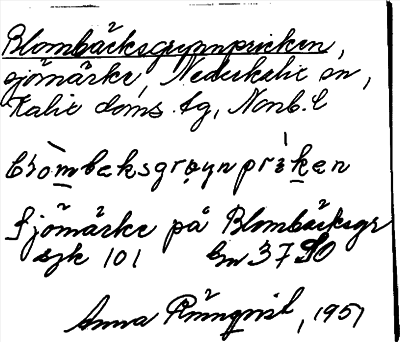 Blombäcksgrynnpricken,
sjömärke, Nederkalix sn,
Kalix doms.tg, Nonb. l
blòmbeksgrøynpríken
Sjömärke på Blombäcksgr
sjk 101 Gm 37 SO
Anna Rönnqvist, 1951